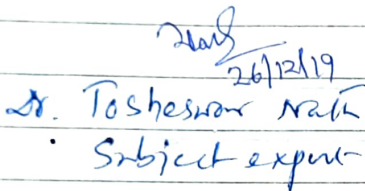 26/12/19
Dr. Tosheswar Nath
Subject expert